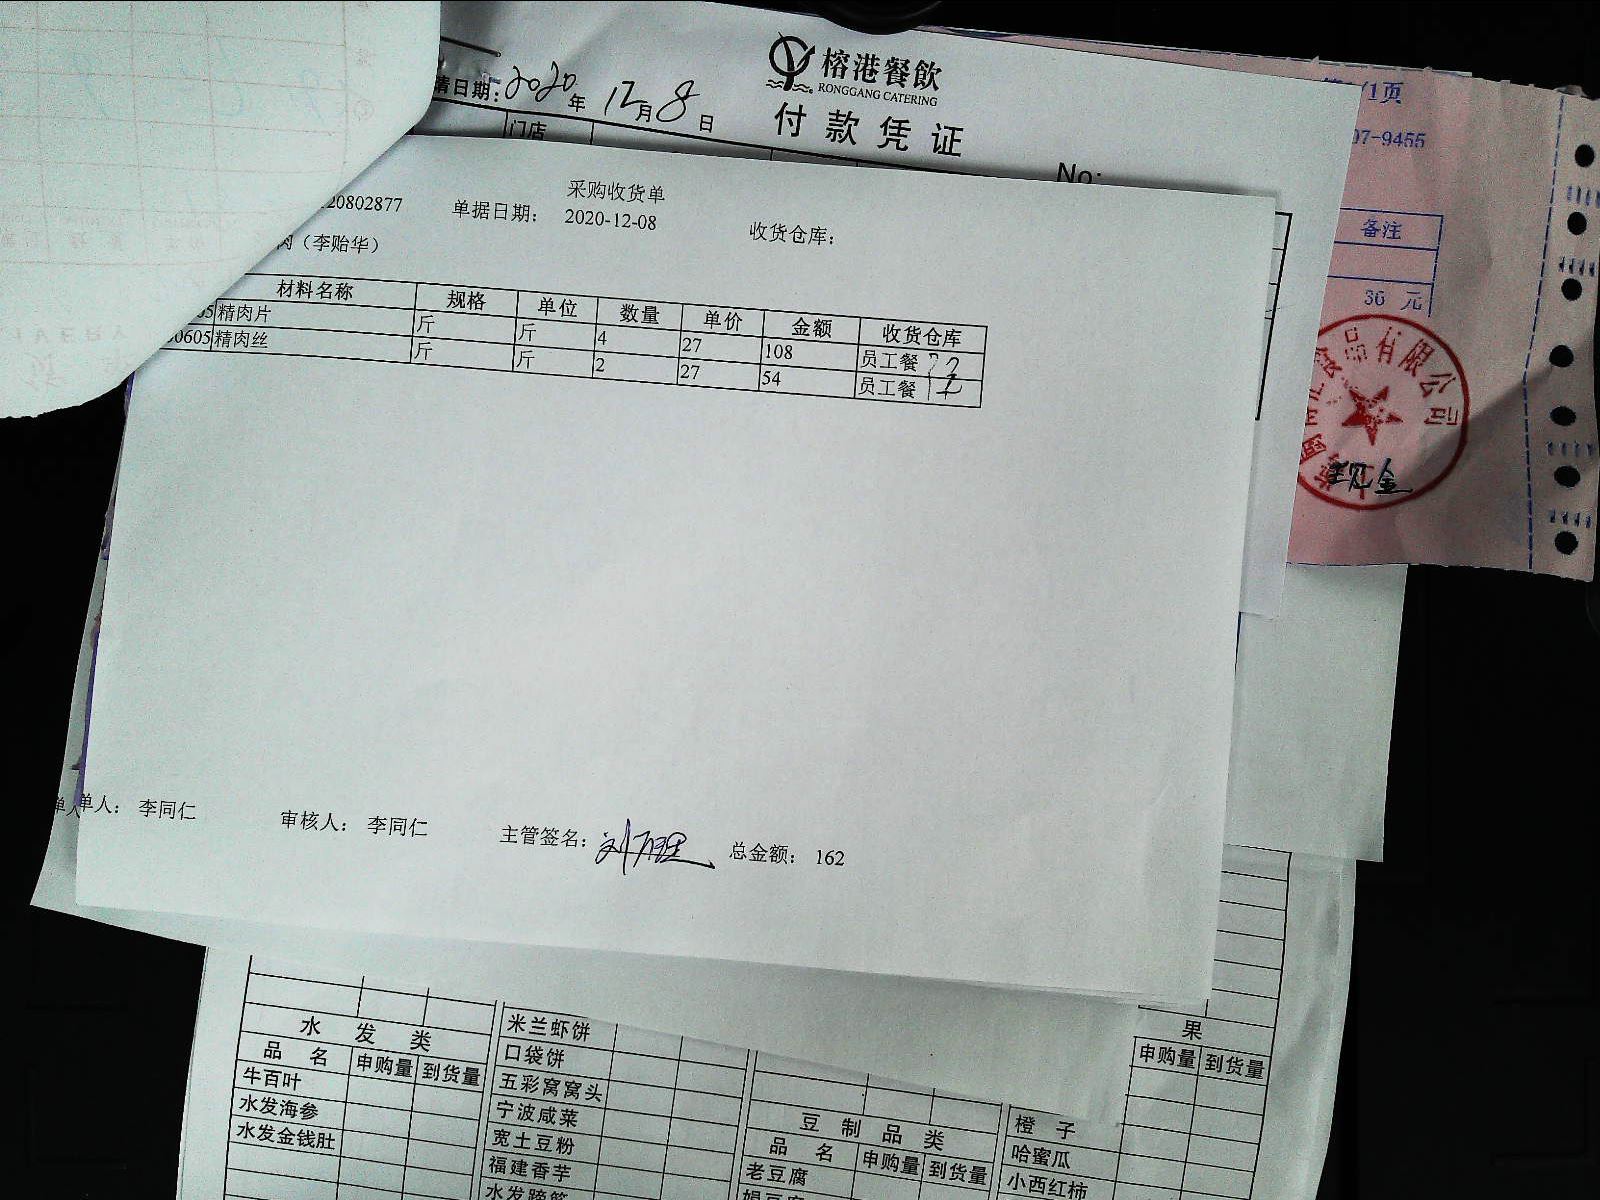 榕港餐飲
RONGGANG CATERING
付款凭证
请日期: 2020年 12月 8日
No:
门店
/1页
07-9455
备注
36 元
食品有限公司
现金
采购收货单
20802877 单据日期: 2020-12-08 收货仓库:
肉（李贻华）
材料名称 规格 单位 数量 单价 金额 收货仓库
05 精肉片 斤 斤 4 27 108 员工餐
0605 精肉丝 斤 斤 2 27 54 员工餐
单人: 李同仁 审核人: 李同仁 主管签名: 总金额: 162
水发类
品名 申购量 到货量
牛百叶
水发海参
水发金钱肚
米兰虾饼
口袋饼
五彩窝窝头
宁波咸菜
宽土豆粉
福建香芋
豆制品类
品名 申购量 到货量
老豆腐
果
申购量 到货量
橙子
哈蜜瓜
小西红柿